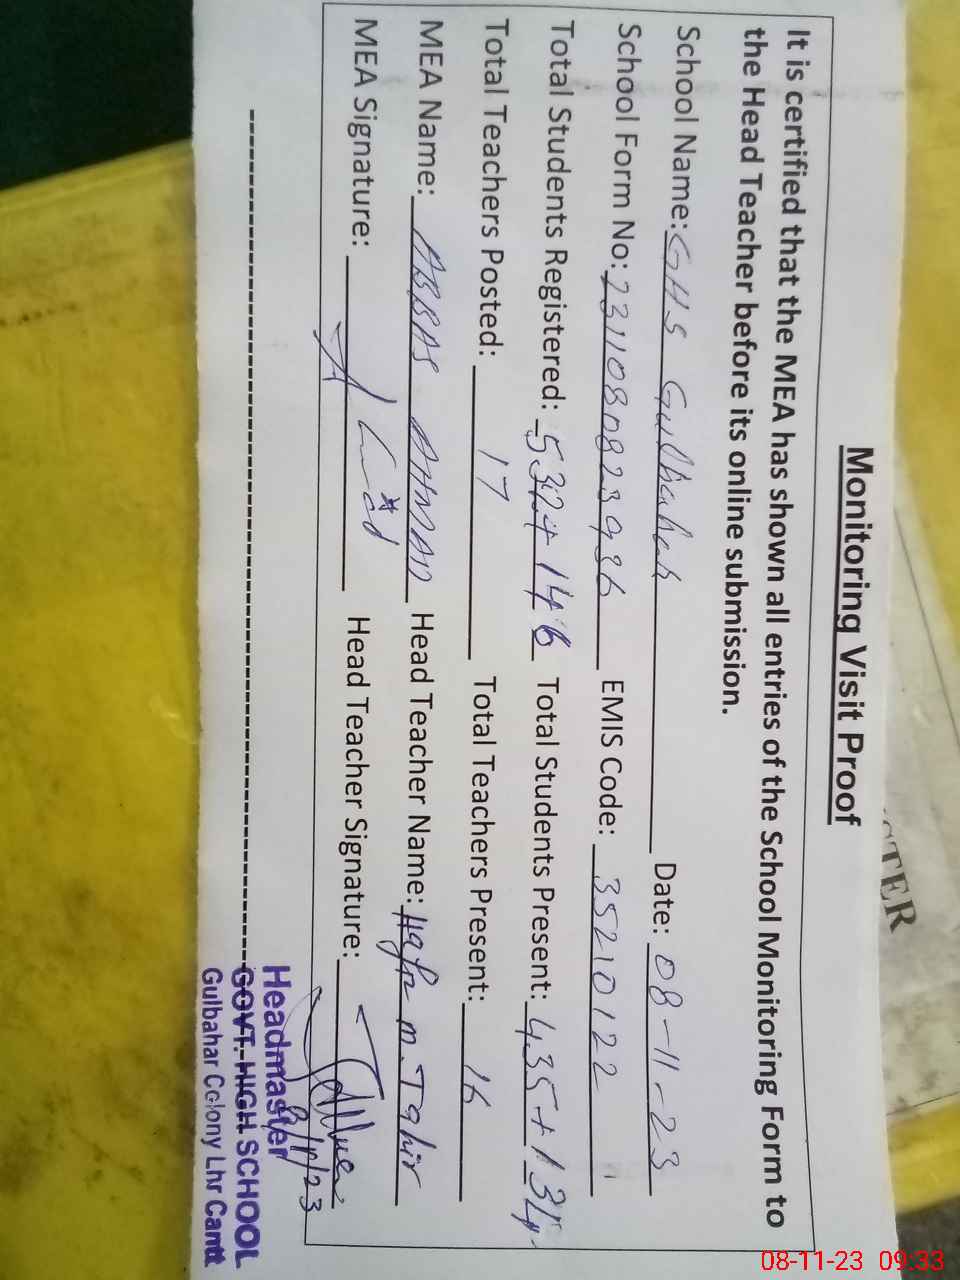 Monitoring Visit Proof
It is certified that the MEA has shown all entries of the School Monitoring Form to
the Head Teacher before its online submission.
School Name: GHS Gulbahar Date: 08-11-23
School Form No: EMIS Code: 35210122
Total Students Registered: 532+146 Total Students Present: 435+134
Total Teachers Posted: 17 Total Teachers Present: 16
MEA Name: ABBAS Head Teacher Name: M. Tahir
MEA Signature: Head Teacher Signature:
8/11/23
Headmaster
GOVT. HIGH SCHOOL
Gulbahar Colony Lhr Cantt
STER
08-11-23 09:33